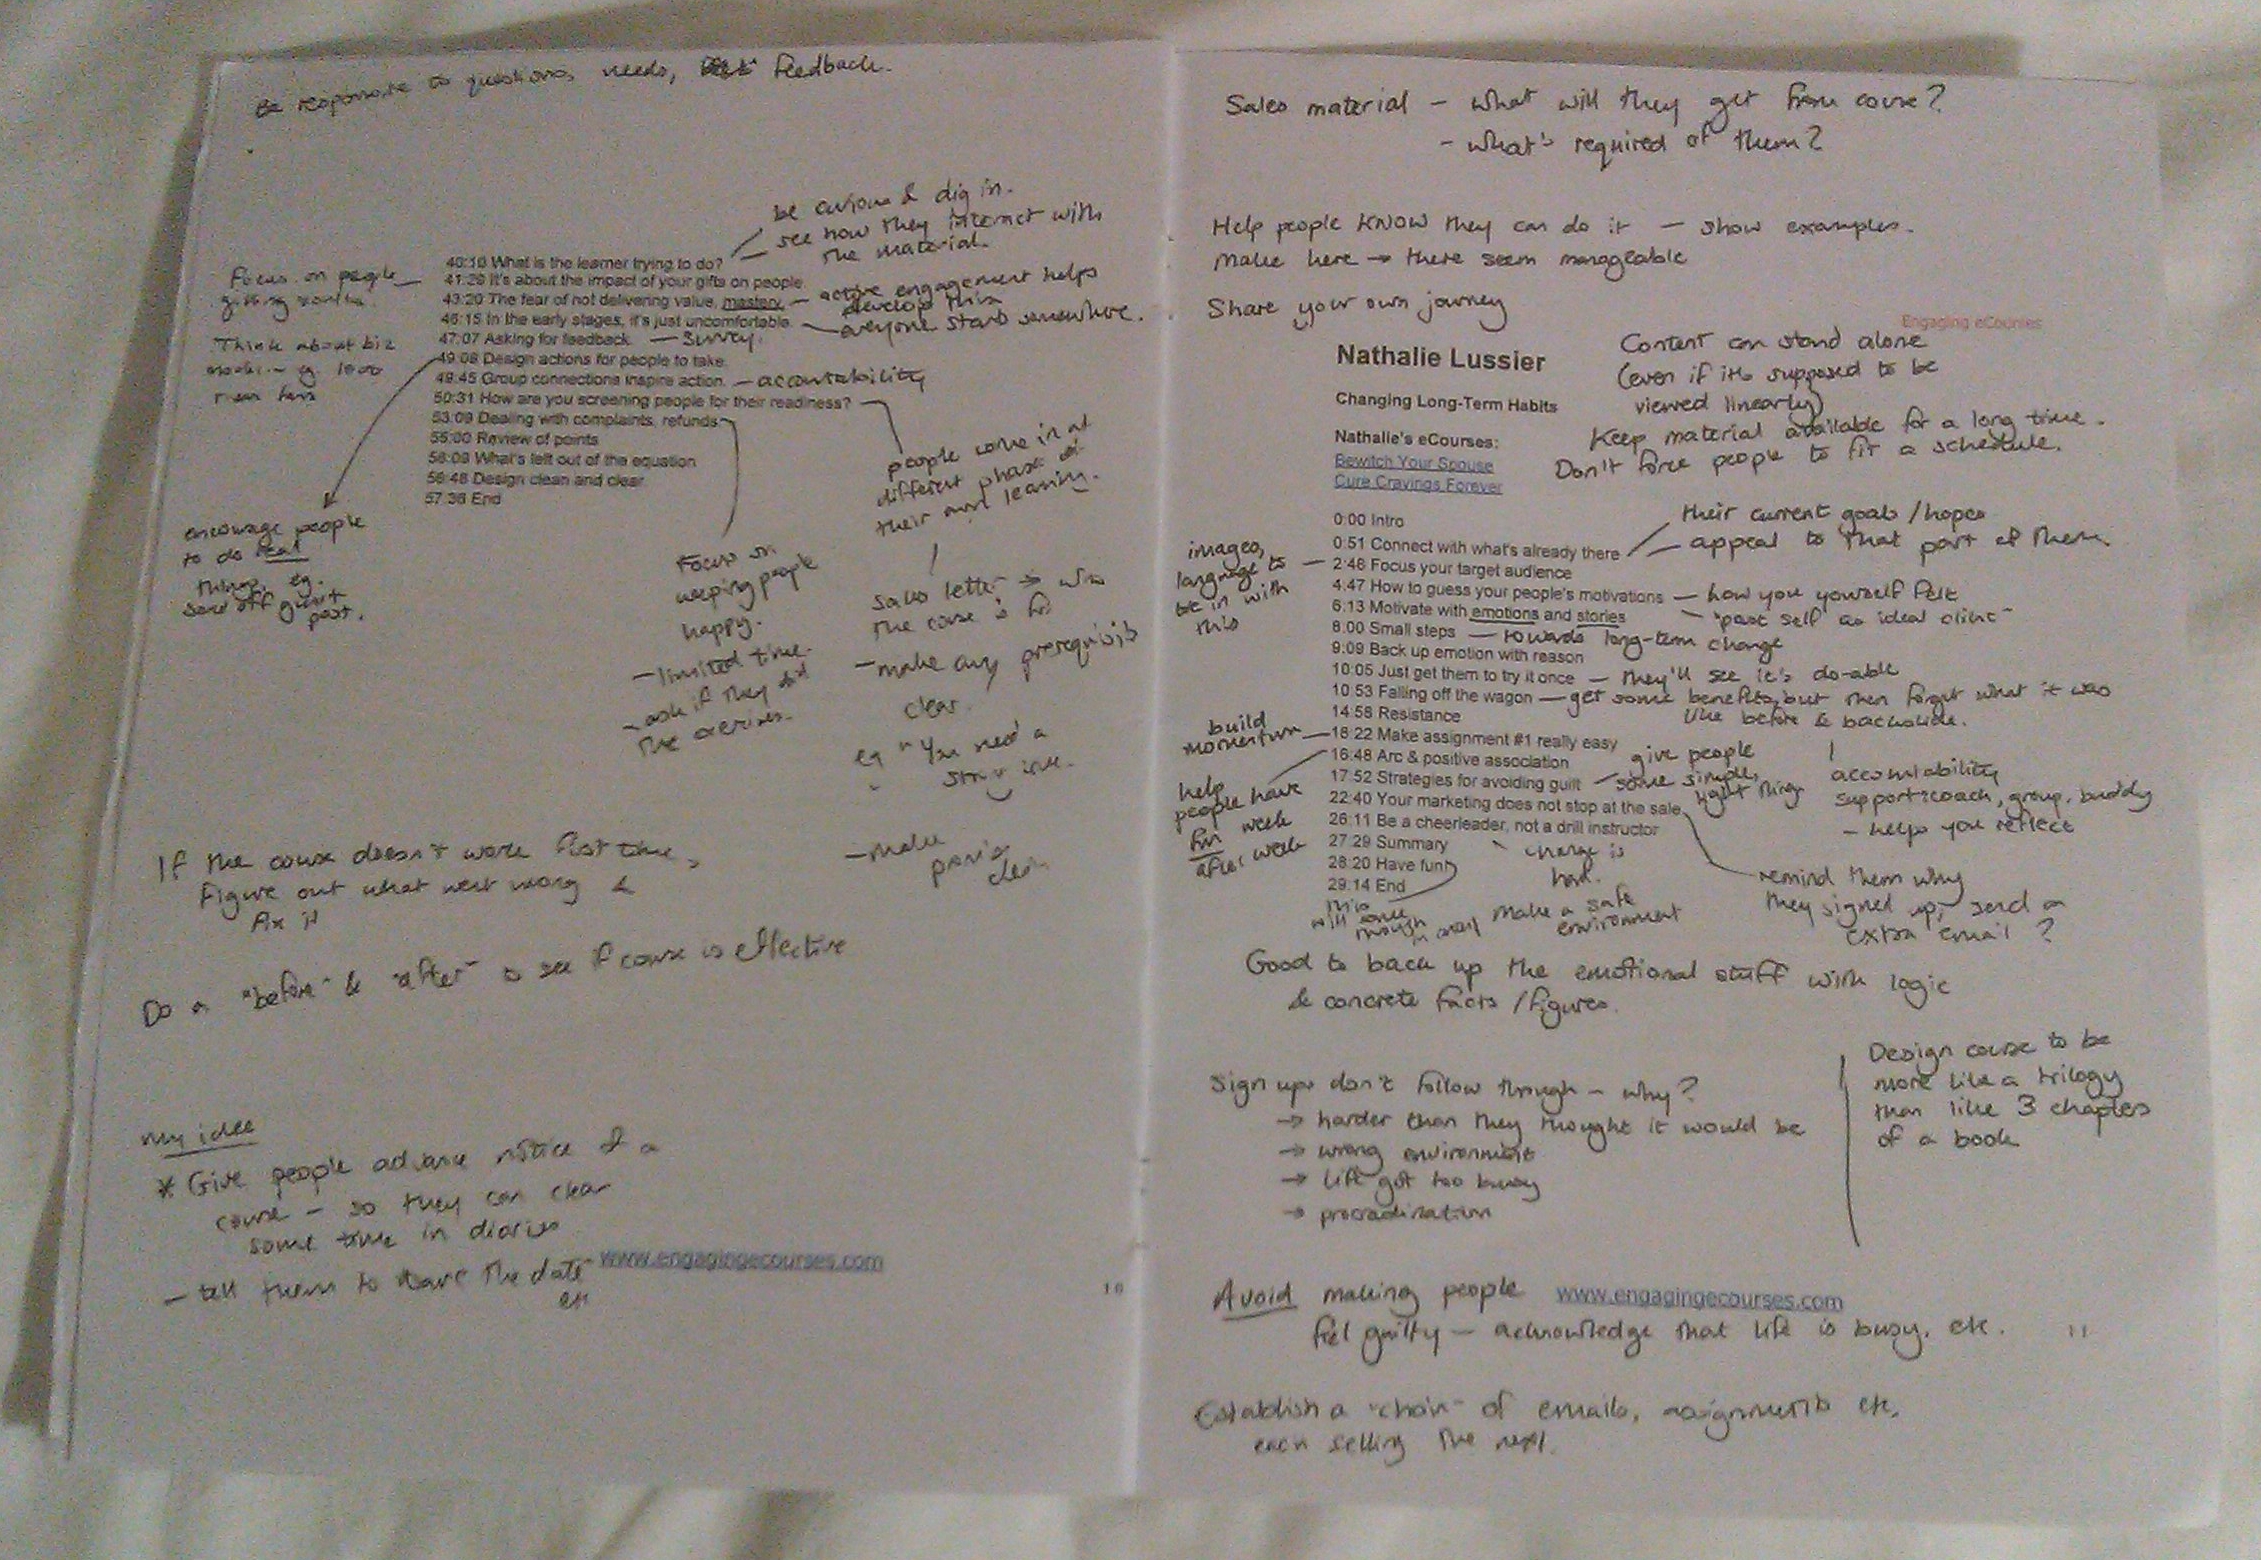 Be responsive to questions, needs, feedback.
be curious & dig in.
see how they interact with
the material.
Focus on people
getting results.
Think about biz
model - eg. 1000
true fans
40:10 What is the learner trying to do?
41:29 It's about the impact of your gifts on people.
43:20 The fear of not delivering value, mastery. - active engagement helps
develop this
46:15 In the early stages, it's just uncomfortable. everyone starts somewhere.
47:07 Asking for feedback. - Survey.
49:08 Design actions for people to take.
49:45 Group connections inspire action. - accountability
50:31 How are you screening people for their readiness?
53:09 Dealing with complaints, refunds
55:00 Review of points
56:09 What's left out of the equation
56:48 Design clean and clear
57:36 End
encourage people
to do real
things, eg.
send off guest
post.
Focus on
keeping people
happy.
- limited time.
- ask if they did
the exercises.
people come in at
different phases of
their own learning.
Sales letter → who
the course is for
- make any prerequisites
clear.
eg "You need a
- make
clear
If the course doesn't work first time,
figure out what went wrong &
fix it
Do a "before" & "after" to see if course is effective
My idea
* Give people advance notice of a
course - so they can clear
some time in diaries
- tell them to save the date
etc
www.engagingecourses.com
10
Sales material - what will they get from course?
- what's required of them?
Help people KNOW they can do it - show examples.
Make here → there seem manageable
Share your own journey
Engaging eCourses
Nathalie Lussier
Changing Long-Term Habits
Nathalie's eCourses:
Bewitch Your Spouse
Cure Cravings Forever
Content can stand alone
(even if it's supposed to be
viewed linearly)
Keep material available for a long time.
Don't force people to fit a schedule.
their current goals / hopes
appeal to that part of them.
images,
language to
be in with
this
0:00 Intro
0:51 Connect with what's already there
2:46 Focus your target audience
4:47 How to guess your people's motivations - how you yourself felt
6:13 Motivate with emotions and stories - "past self as ideal client"
8:00 Small steps - towards long-term change
9:09 Back up emotion with reason
10:05 Just get them to try it once - they'll see it's do-able
10:53 Falling off the wagon - get some benefits, but then forget what it was
like before & backslide.
14:58 Resistance
build
momentum
16:22 Make assignment #1 really easy
16:48 Arc & positive association
17:52 Strategies for avoiding guilt
22:40 Your marketing does not stop at the sale
26:11 Be a cheerleader, not a drill instructor
27:29 Summary
28:20 Have fun
29:14 End
give people
some simple,
light things
accountability
support: coach, group, buddy
- helps you reflect
help
people have
fun week
after week
change is
hard.
make a safe
environment
this
will come
through
in
remind them why
they signed up, send a
extra email?
Good to back up the emotional stuff with logic
& concrete facts / figures.
Sign ups don't follow through - why?
→ harder than they thought it would be
→ wrong environment
→ life got too busy
→ procrastination
Design course to be
more like a trilogy
than like 3 chapters
of a book
Avoid making people
feel guilty - acknowledge that life is busy, etc.
www.engagingecourses.com
11
Establish a "chain" of emails, assignments etc,
each selling the next.